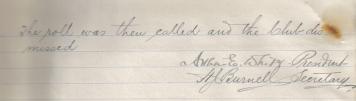 The roll was then called and the Club dis
missed
Whidy President
A J Burnell Secretary